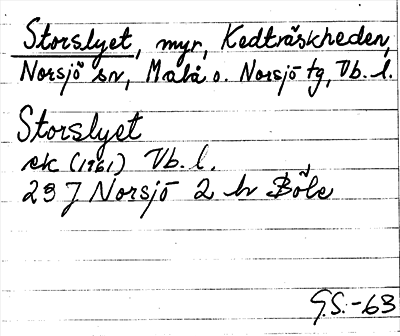 Storslyet, myr, Kedträskheden,
Norsjö sn, Malå o. Norsjö tg, Vb. l.
Storslyet
ek (1961) Vb. l.
23 J Norsjö 2 h Böle
G.S.-63